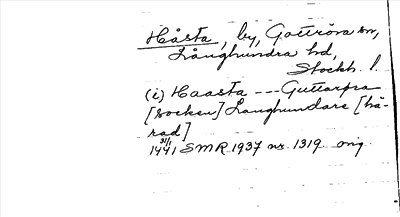 Håsta, by, Gottröra sn,
Långhundra hd,
Stockh. l.
(i) Haasta --- Guttarpra
[socken] Langhundare [hä-
rad]
31/1
1441 SMR 1937 nr. 1319 orig.